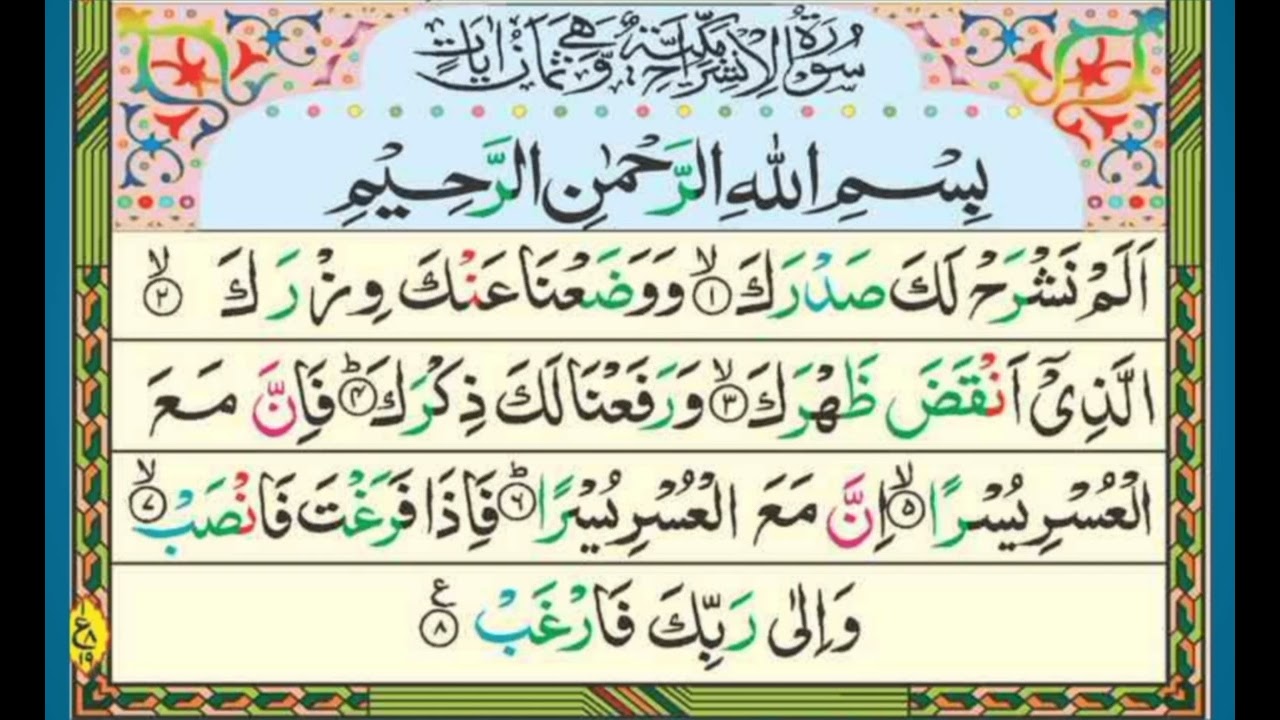 سُوْرَةُ الْاِنْشِرَاحِ مَكِّيَّةٌ وَّهِيَ ثَمَانُ اٰيَاتٍ
بِسْمِ اللّٰهِ الرَّحْمٰنِ الرَّحِيْمِ
اَلَمْ نَشْرَحْ لَكَ صَدْرَكَ ۙ﴿۱﴾ وَوَضَعْنَا عَنْكَ وِزْرَكَ ۙ﴿۲﴾
الَّذِيْۤ اَنْقَضَ ظَهْرَكَ ۙ﴿۳﴾ وَرَفَعْنَا لَكَ ذِكْرَكَ ؕ﴿۴﴾ فَاِنَّ مَعَ
الْعُسْرِ يُسْرًا ۙ﴿۵﴾ اِنَّ مَعَ الْعُسْرِ يُسْرًا ؕ﴿۶﴾ فَاِذَا فَرَغْتَ فَانْصَبْ ۙ﴿۷﴾
وَاِلٰى رَبِّكَ فَارْغَبْ ﴿۸﴾ ع
۱
ع۸
۱۹